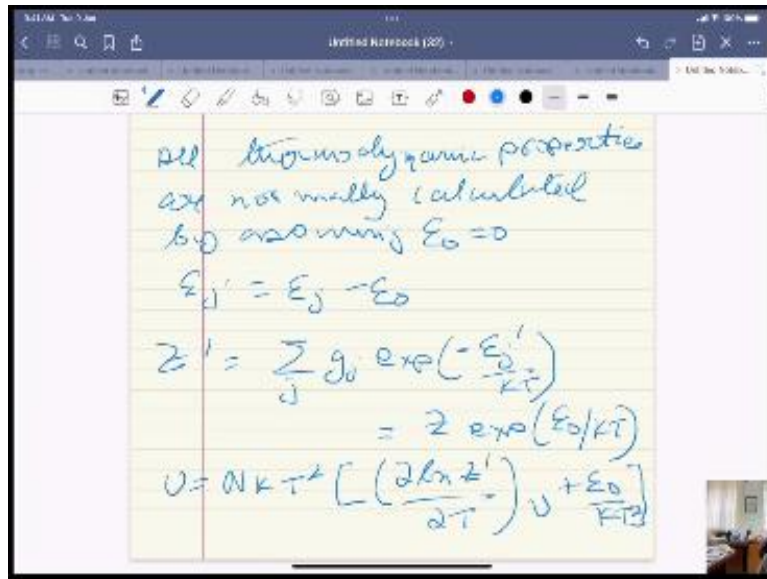 Untitled Notebook (32)
All thermodynamic properties
are normally calculated
by assuming ε₀ = 0
εj' = εj - ε₀
Z' = Σj gj exp(-εj'/kT)
= Z exp(ε₀/kT)
U = NkT² [(∂ln Z'/∂T)v + ε₀/kT²]